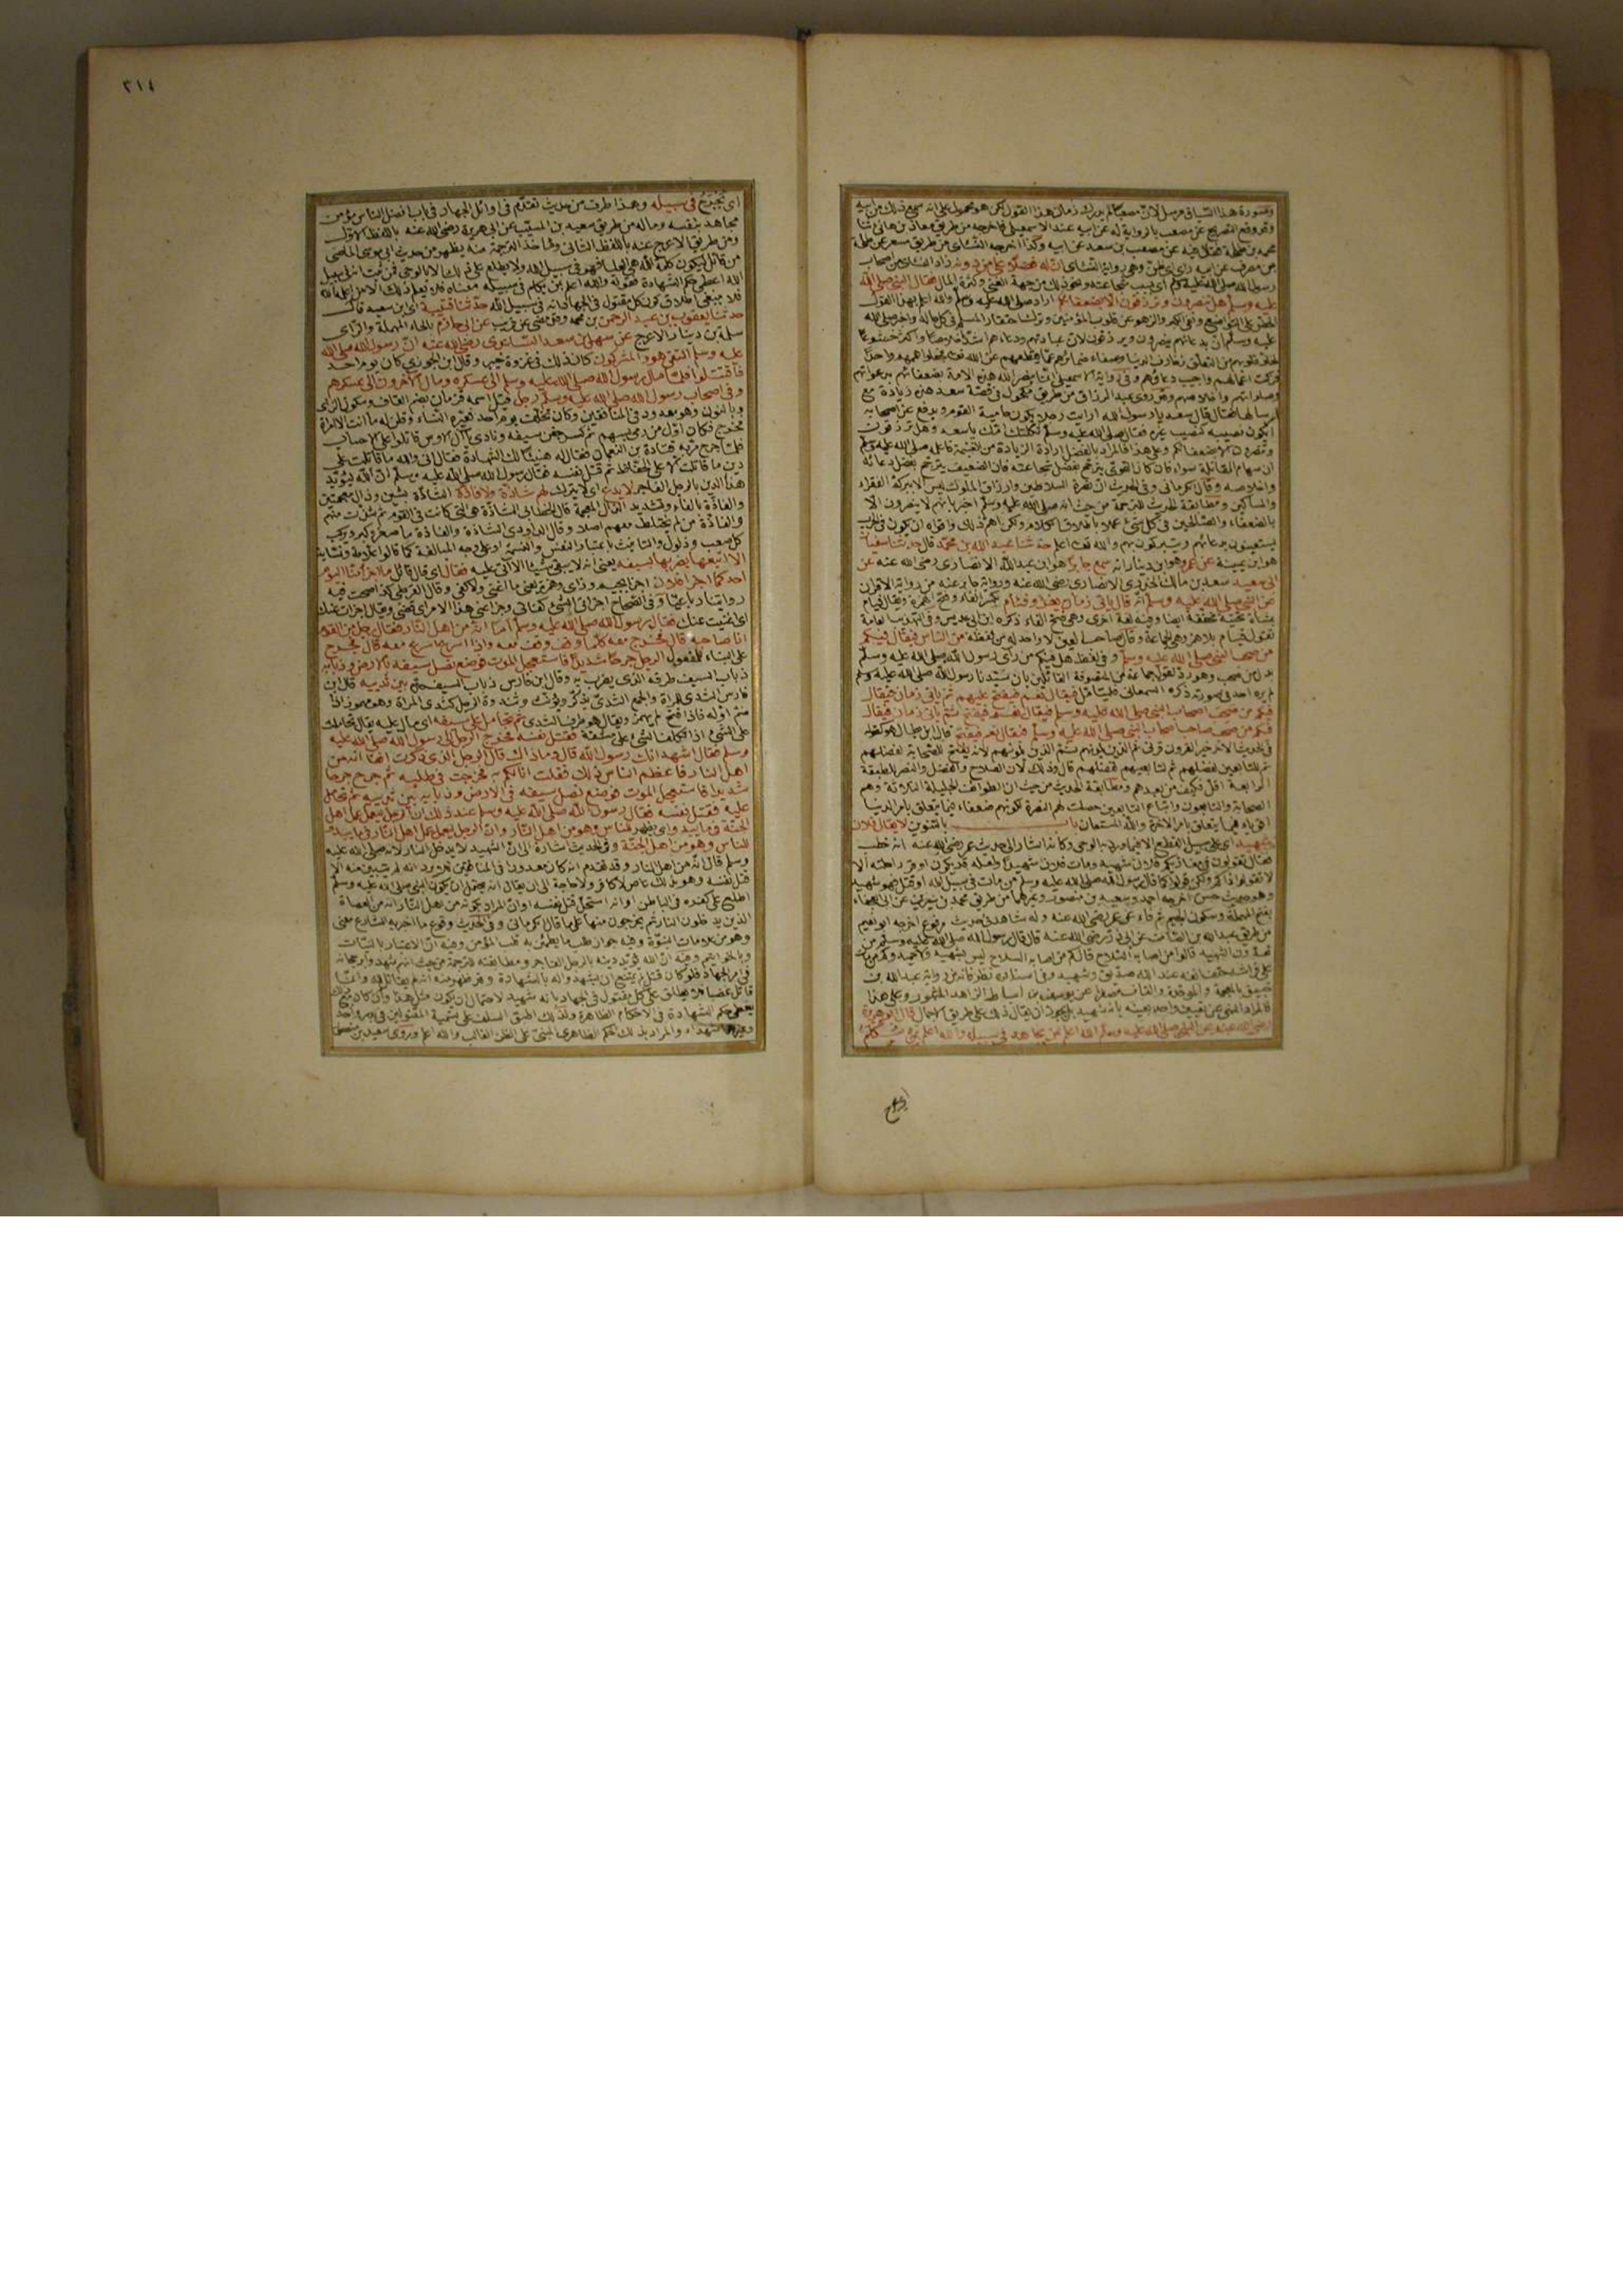 وصورة هذا السياق مرسل لان مصعبا لم يدرك زمان هذا القول لكن هو محمول على انه سمع ذلك من ابيه
وقد وقع التصريح عن مصعب بالرواية له عن ابيه عند الاسمعيلي فاخرجه من طريق معاذ بن هانئ ثنا
محمد بن طلحة فقال فيه عن مصعب بن سعد عن ابيه وكذا اخرجه النسائي من طريق مسعر عن طلحة
بن مصرف عن ابيه راى اى ظن وهى رواية النسائى ان له فضلا على من دونه زاد النسائى من اصحاب
رسول الله صلى الله عليه وسلم اى بسبب شجاعته ونحو ذلك من جهة الغنى وكثرة المال فقال النبى صلى الله
عليه وسلم هل تنصرون وترزقون الا بضعفائكم اراد صلى الله عليه وسلم والله اعلم بهذا القول
الحض على التواضع ونفى الكبر والزهو عن قلوب المؤمنين وترك احتقار المسلم فى كل حالة واخبر صلى الله
عليه وسلم ان بدعائهم ينصرون ويرزقون لان عبادتهم ودعاءهم اشد اخلاصا واكثر خشوعا
لخلاء قلوبهم من التعلق بزخارف الدنيا وصفاء ضمائرهم عما يقطعهم عن الله تعالى فجعلوا همهم واحدا
فزكت اعمالهم واجيب دعاؤهم وفى رواية الاسمعيلى انما ينصر الله هذه الامة بضعفائهم بدعواتهم
وصلواتهم واخلاصهم وقد روى عبد الرزاق من طريق مكحول فى قصة سعد هذه زيادة مع
ارسالها فقال قال سعد يا رسول الله ارايت رجلا يكون حامية القوم ويدفع عن اصحابه
ايكون نصيبه كنصيب غيره فقال صلى الله عليه وسلم ثكلتك امك يا سعد وهل ترزقون
وتنصرون الا بضعفائكم وعلى هذا فالمراد بالفضل ارادة الزيادة من الغنيمة فاعلمه صلى الله عليه وسلم
ان سهام المقاتلة سواء فان كان القوى يترجح بفضل شجاعته فان الضعيف يترجح بفضل دعائه
واخلاصه وقال الكرمانى وفى الحديث ان نصرة السلاطين وارزاق الملوك ليس الا ببركة الفقراء
والمساكين ومطابقة الحديث للترجمة من حيث انه صلى الله عليه وسلم اخبر بانهم لا ينصرون الا
بالضعفاء والصالحين فى كل شئ عملا باطلاق الكلام ولكن اهم ذلك واقواه ان يكون فى الحرب
يستعينون بدعائهم ويتبركون بهم والله تعالى اعلم حدثنا عبد الله بن محمد قال حدثنا سفيان
هو ابن عيينة عن عمرو هو ابن دينار انه سمع جابرا هو ابن عبد الله الانصارى رضى الله عنه عن
ابى سعيد سعد بن مالك الخدرى الانصارى رضى الله عنه ورواية جابر عنه من رواية الاقران
عن النبى صلى الله عليه وسلم انه قال ياتى زمان يغزو فئام بكسر الفاء وفتح الهمزة ويقال فيام
بياء تحتية مخففة ايضا وفيه لغة اخرى وهى فتح الفاء ذكره ابن عديس وفى التهذيب العامة
تقول فيام بلا همز وهى الجماعة وقال صاحب العين لا واحد له من لفظه من الناس فيقال فيكم
من صحب النبى صلى الله عليه وسلم وفى لفظ هل فيكم من راى رسول الله صلى الله عليه وسلم
بدل من صحب وهو رد لقول جماعة من المتصوفة القائلين بان سيدنا رسول الله صلى الله عليه وسلم
لم يره احد فى صورته ذكره السمعانى فليتامل فيقال نعم فيفتح عليهم ثم ياتى زمان فيقال
فيكم من صحب اصحاب النبى صلى الله عليه وسلم فيقال نعم فيفتح ثم ياتى زمان فيقال
فيكم من صحب صاحب اصحاب النبى صلى الله عليه وسلم فيقال نعم فيفتح قال ابن بطال هو كقوله
فى الحديث الاخر خير القرون قرنى ثم الذين يلونهم ثم الذين يلونهم لانه يفتح للصحابة لفضلهم
ثم للتابعين لفضلهم ثم لتابعيهم لفضلهم قال وذلك لان الصلاح والفضل والنصر للطبقة
الرابعة اقل فكيف من بعدهم ومطابقة الحديث من حيث ان الطوائف الجليلة الثلاثة وهم
الصحابة والتابعون واتباع التابعين حصلت لهم النصرة لكونهم ضعفاء فيما يتعلق بامر الدنيا
اقوياء فيما يتعلق بامر الاخرة والله المستعان باب بالتنوين لا يقال فلان
شهيد اى على سبيل القطع الا فيما ورد به الوحى وكانه اشار الى حديث عمر رضى الله عنه انه خطب
فقال تقولون فى مغازيكم فلان شهيد ومات فلان شهيدا ولعله قد يكون اوقر راحلته الا
لا تقولوا ذاكم ولكن قولوا كما قال رسول الله صلى الله عليه وسلم من مات فى سبيل الله او قتل فهو شهيد
وهو حديث حسن اخرجه احمد وسعيد بن منصور وغيرهما من طريق محمد بن سيرين عن ابى العجفاء
بفتح المهملة وسكون الجيم ثم فاء عن عمر رضى الله عنه وله شاهد فى حديث مرفوع اخرجه ابو نعيم
من طريق عبد الله بن الصامت عن ابى ذر رضى الله عنه قال قال رسول الله صلى الله عليه وسلم من
تعدون الشهيد قالوا من اصابه السلاح قال كم من اصابه السلاح ليس بشهيد ولا حميد وكم من مات
على فراشه حتف انفه عند الله صديق وشهيد وفى اسناده نظر فانه من رواية عبد الله بن
خبيق بالمعجمة والموحدة والقاف مصغرا عن يوسف بن اسباط الزاهد المشهور وعلى هذا
فالمراد النهى عن تعيين واحد بعينه بانه شهيد بل يجوز ان يقال ذلك على طريق الاجمال قال ابو هريرة
رضى الله عنه عن النبى صلى الله عليه وسلم الله اعلم بمن يجاهد فى سبيله والله اعلم بمن يكلم
٣١٤
اى يجرح فى سبيله وهذا طرف من حديث تقدم فى اوائل الجهاد فى باب افضل الناس مؤمن
مجاهد بنفسه وماله من طريق سعيد بن المسيب عن ابى هريرة رضى الله عنه باللفظ الاول
ومن طريق الاعرج عنه باللفظ الثانى وقال اخذ الترجمة منه يظهر من حديث ابى موسى الماضى
من قاتل لتكون كلمة الله هى العليا فهو فى سبيل الله ولا يطلع على ذلك الا بالوحى فمن ثبت انه فى سبيل
الله اعطى حكم الشهادة فقوله والله اعلم بمن يكلم فى سبيله معناه فلا يعلم ذلك الا من اعلمه الله
فلا ينبغى اطلاق كون كل مقتول فى الجهاد انه فى سبيل الله حدثنا قتيبة اى ابن سعيد قال
حدثنا يعقوب بن عبد الرحمن بن محمد وقد مضى عن قريب عن ابى حازم بالحاء المهملة والزاى
سلمة بن دينار الاعرج عن سهل بن سعد الساعدى رضى الله عنه ان رسول الله صلى الله
عليه وسلم التقى هو والمشركون كان ذلك فى غزوة خيبر وقال ابن الجوزى كان يوم احد
فاقتتلوا فلما مال رسول الله صلى الله عليه وسلم الى عسكره ومال الآخرون الى عسكرهم
وفى اصحاب رسول الله صلى الله عليه وسلم رجل قيل اسمه قزمان بضم القاف وسكون الزاى
وبالنون وهو معدود فى المنافقين وكان تخلف يوم احد فعيره النساء وقلن له ما انت الا امراة
فخرج فكان اول من رمى بسهم ثم كسر جفن سيفه ونادى يا آل الاوس قاتلوا على الاحساب
فلما جرح مر به قتادة بن النعمان فقال له هنيئا لك الشهادة فقال انى والله ما قاتلت على
دين ما قاتلت الا على الحفاظ ثم قتل نفسه فقال رسول الله صلى الله عليه وسلم ان الله ليؤيد
هذا الدين بالرجل الفاجر لا يدع اى لا يترك لهم شاذة ولا فاذة الشاذة بشين وذال معجمتين
والفاذة بالفاء وتشديد الذال المعجمة قال الخطابى الشاذة هى التى كانت فى القوم ثم شذت منهم
والفاذة من لم يختلط معهم اصلا وقال الداودى الشاذة والفاذة ما صغر وكبر ويركب
كل صعب وذلول والتانيث باعتبار النفس والنسمة او على وجه المبالغة كما قالوا علامة ونسابة
الا اتبعها يضربها بسيفه يعنى انه لا يبقى شيئا الا اتى عليه فقال اى قال قائل ما اجزا منا اليوم
احد كما اجزا فلان اجزا بجيم وزاى وهمزة يعنى ما اغنى ولا كفى وقال القرطبى كذا صحت فيه
روايتنا رباعيا وفى الصحاح اجزانى الشئ كفانى وجزا عنى هذا الامر اى قضى ويقال اجزات عنك
اى غنيت عنك فقال رسول الله صلى الله عليه وسلم اما انه من اهل النار فقال رجل من القوم
انا صاحبه قال فخرج معه كلما وقف وقف معه واذا اسرع اسرع معه قال فجرح
على البناء للمفعول الرجل جرحا شديدا فاستعجل الموت فوضع نصل سيفه بالارض وذبابه
ذباب السيف طرفه الذى يضرب به وقال ابن فارس ذباب السيف حده بين ثدييه قال ابن
فارس الثدى للمراة والجمع الثدى يذكر ويؤنث وثندوة الرجل كثدى المراة وهو مهموز اذا
ضم اوله فاذا فتح لم يهمز ويقال هو طرف الثدى ثم تحامل على سيفه اى مال عليه يقال تحاملت
على الشئ اذا تكلفت الشئ على مشقة فقتل نفسه فخرج الرجل الى رسول الله صلى الله عليه
وسلم فقال اشهد انك رسول الله قال وما ذاك قال الرجل الذى ذكرت انفا انه من
اهل النار فاعظم الناس ذلك فقلت انا لكم به فخرجت فى طلبه ثم جرح جرحا
شديدا فاستعجل الموت فوضع نصل سيفه فى الارض وذبابه بين ثدييه ثم تحامل
عليه فقتل نفسه فقال رسول الله صلى الله عليه وسلم عند ذلك ان الرجل ليعمل عمل اهل
الجنة فيما يبدو اى يظهر للناس وهو من اهل النار وان الرجل ليعمل عمل اهل النار فيما يبدو
للناس وهو من اهل الجنة وفى الحديث اشارة الى ان الشهيد لا يدخل النار لانه صلى الله عليه
وسلم قال انه من اهل النار وقد تقدم انه كان معدودا فى المنافقين ولم يتبين منه الا
قتل نفسه وهو بذلك عاص لا كافر ولا حاجة الى ان يقال انه يحتمل ان يكون النبى صلى الله عليه وسلم
اطلع على كفره فى الباطن او انه استحل قتل نفسه او ان المراد بكونه من اهل النار انه من العصاة
الذين يدخلون النار ثم يخرجون منها على ما قال الكرمانى وفى الحديث وقوع ما اخبر به الشارع
وهو من علامات النبوة وفيه جواز طلب ما يطمئن به قلب المؤمن وفيه ان الاعتبار بالنيات
وبالخواتيم وفيه ان الله يؤيد دينه بالرجل الفاجر ومطابقته للترجمة من حيث انهم شهدوا برجحانه
فى امر الجهاد فلو كان قتل لم يمتنع ان يشهدوا له بالشهادة وقد ظهر منه انه لم يقاتل لله وانما
قاتل غضبا فلا يطلق على كل مقتول فى الجهاد بانه شهيد لاحتمال ان يكون مثل هذا وان كان مع ذلك
يعطى حكم الشهادة فى الاحكام الظاهرة ولذلك اطبق السلف على تسمية المقتولين فى بدر واحد
وغيرهما شهداء والمراد بذلك الحكم الظاهرى المبنى على الظن الغالب والله اعلم وروى سعيد بن منصور